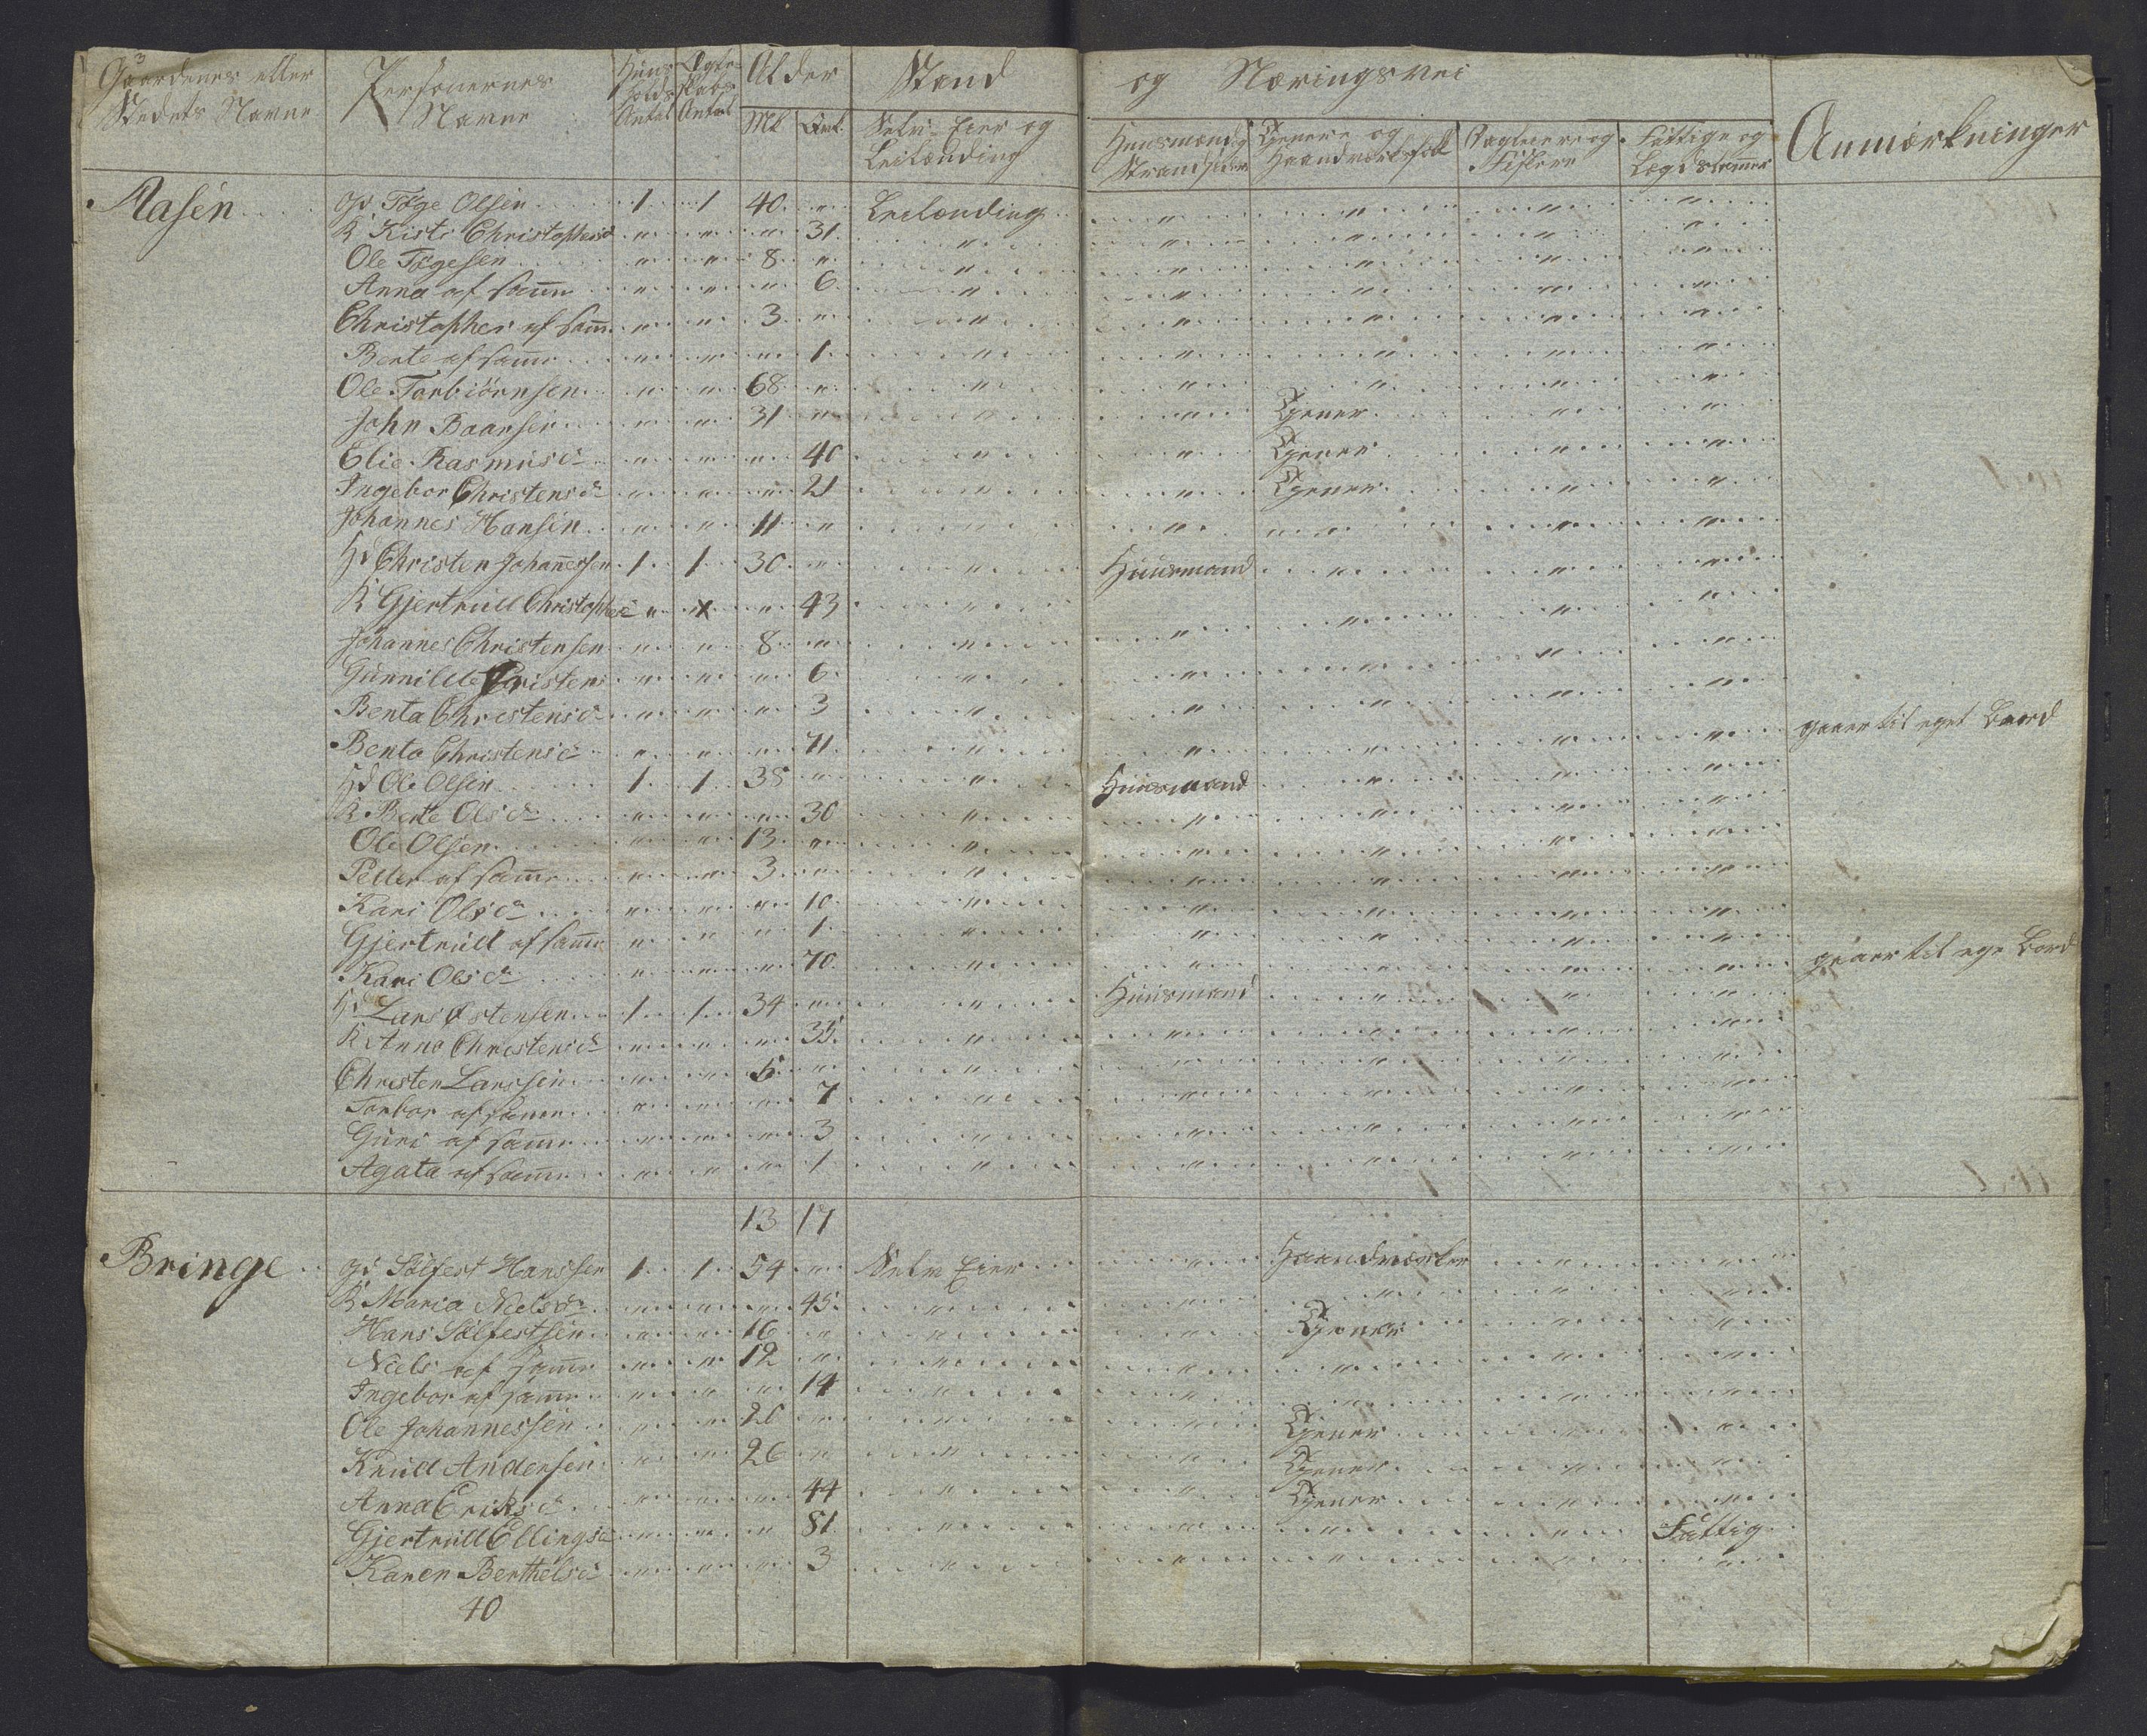 3
Gaardenes eller Stedets Navne | Personernes Navne | Huus holds Antal | Ægte skabs Antal | Alder | Stand og Næringsvei | Anmærkninger
Mk | Qvk. | Selv-Eier og Leilænding | Huusmænd og Strandsidere | Tjenere og Haandværksfolk | Dagleiere og Fiskere | Fattige og Lægdslemmer
Aasen Gd Töge Olsen 1 1 40 " Leilænding " " " "
K Kisti Christophersd " " " 31 " " " " "
Ole Tögesen " " 8 " " " " " "
Anna af samme " " " 6 " " " " "
Christopher af sam̄ " " 3 " " " " " "
Bente af samme " " " 1 " " " " "
Ole Torbiörnsen " " 68 " " " " " "
John Baarsen " " 31 " " " Tjener " "
Elie Rasmusdr " " " 40 " " Tjener " "
Ingebor Christensdr " " " 21 " " Tjener " "
Johannes Hansen " " 11 " " " " " "
Hd Christen Johan̄essen 1 1 30 " " Huusmand " " "
K Gjertrud Christophersd " x " 43 " " " " "
Johannes Christensen " " 8 " " " " " "
Gunnilde Christens " " " 6 " " " " "
Benta Christensdr " " " 3 " " " " "
Benta Christensd " " " 71 " " " " " gaaer til eget Bord
Hd Ole Olsen 1 1 38 " " Huusmand " " "
K Bente Olsdr " " " 30 " " " " "
Ole Olsen " " 13 " " " " " "
Peder af samme " " 3 " " " " " "
Kari Olsdr " " " 10 " " " " "
Gjertrud af samme " " " 1 " " " " "
Kari Olsdr " " " 70 " " " " " gaaer til ege Bord
Hd Lars Østensen 1 1 34 " " Huusmand " " "
K Anna Christensdr " " " 35 " " " " "
Christen Larssen " " 5 " " " " " "
Torbor af samme " " " 7 " " " " "
Guri af samme " " " 3 " " " " "
Agata af samme " " " 1 " " " " "
13 17
Bringe Gd Sölfest Hanssen 1 1 54 " Selv Eier " Haandværker " "
K Maria Nielsdr " " " 45 " " " " "
Hans Sölfestsen " " 16 " " " Tjener " "
Niels af samme " " 12 " " " " " "
Ingebor af samme " " " 14 " " " " "
Ole Johannessen " " 20 " " " Tjener " "
Knud Andersen " " 26 " " " Tjener " "
Anna Eriksdr " " " 44 " " Tjener " "
Gjertrud Ellingsd " " " 81 " " " " Fattig
Karen Berthelsd " " " 3 " " " " "
40